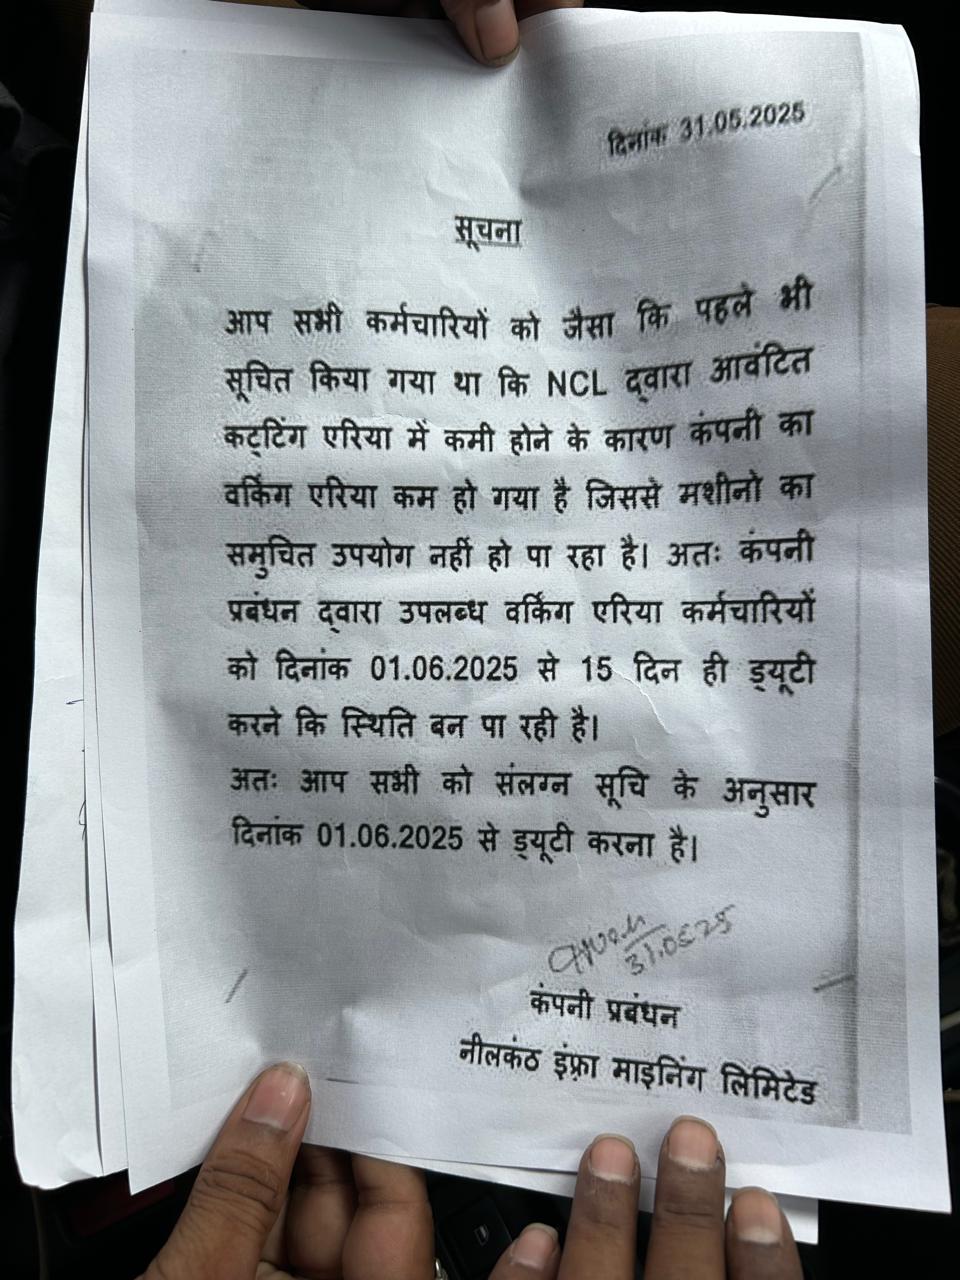 दिनांक 31.05.2025
सूचना
आप सभी कर्मचारियों को जैसा कि पहले भी
सूचित किया गया था कि NCL द्वारा आवंटित
कट्टिंग एरिया में कमी होने के कारण कंपनी का
वर्किंग एरिया कम हो गया है जिससे मशीनो का
समुचित उपयोग नहीं हो पा रहा है। अतः कंपनी
प्रबंधन द्वारा उपलब्ध वर्किंग एरिया कर्मचारियों
को दिनांक 01.06.2025 से 15 दिन ही ड्यूटी
करने कि स्थिति बन पा रही है।
अतः आप सभी को संलग्न सूचि के अनुसार
दिनांक 01.06.2025 से ड्यूटी करना है।
31.05.25
कंपनी प्रबंधन
नीलकंठ इंफ्रा माइनिंग लिमिटेड